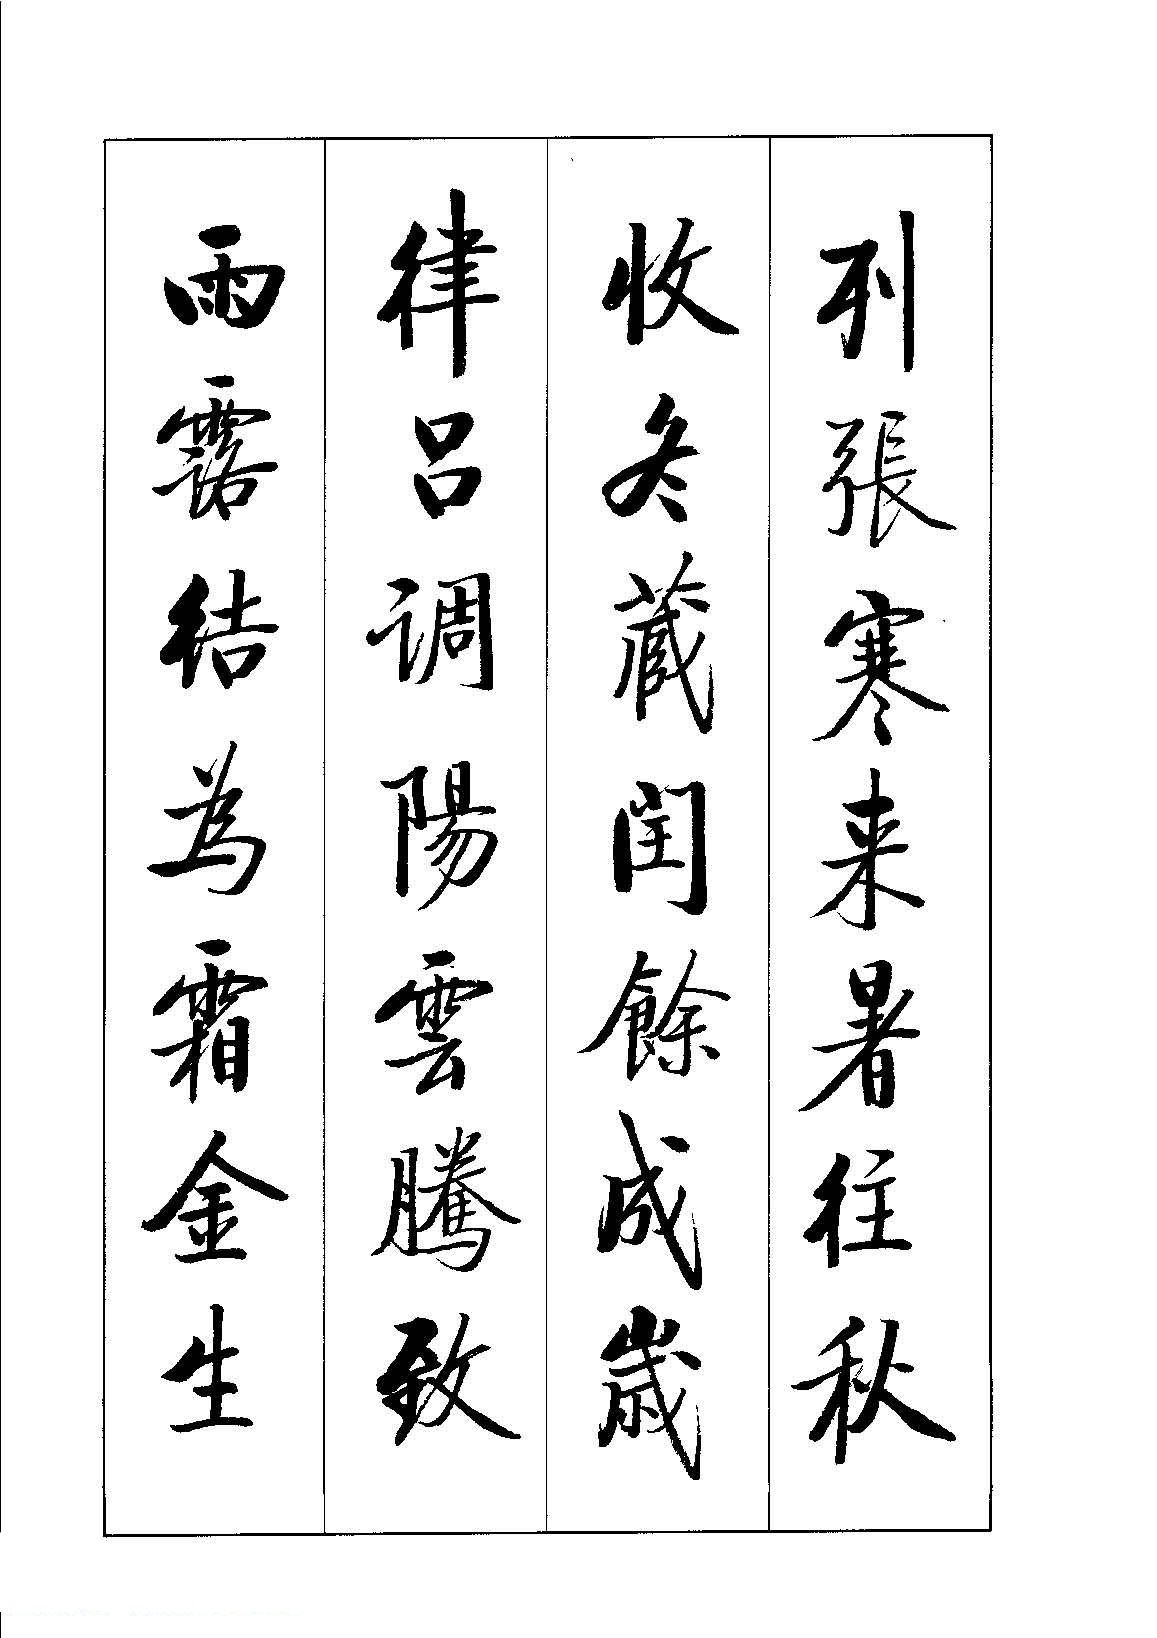 列張寒来暑往秋
收冬蔵閏餘成歳
律呂调陽雲騰致
雨露结為霜金生